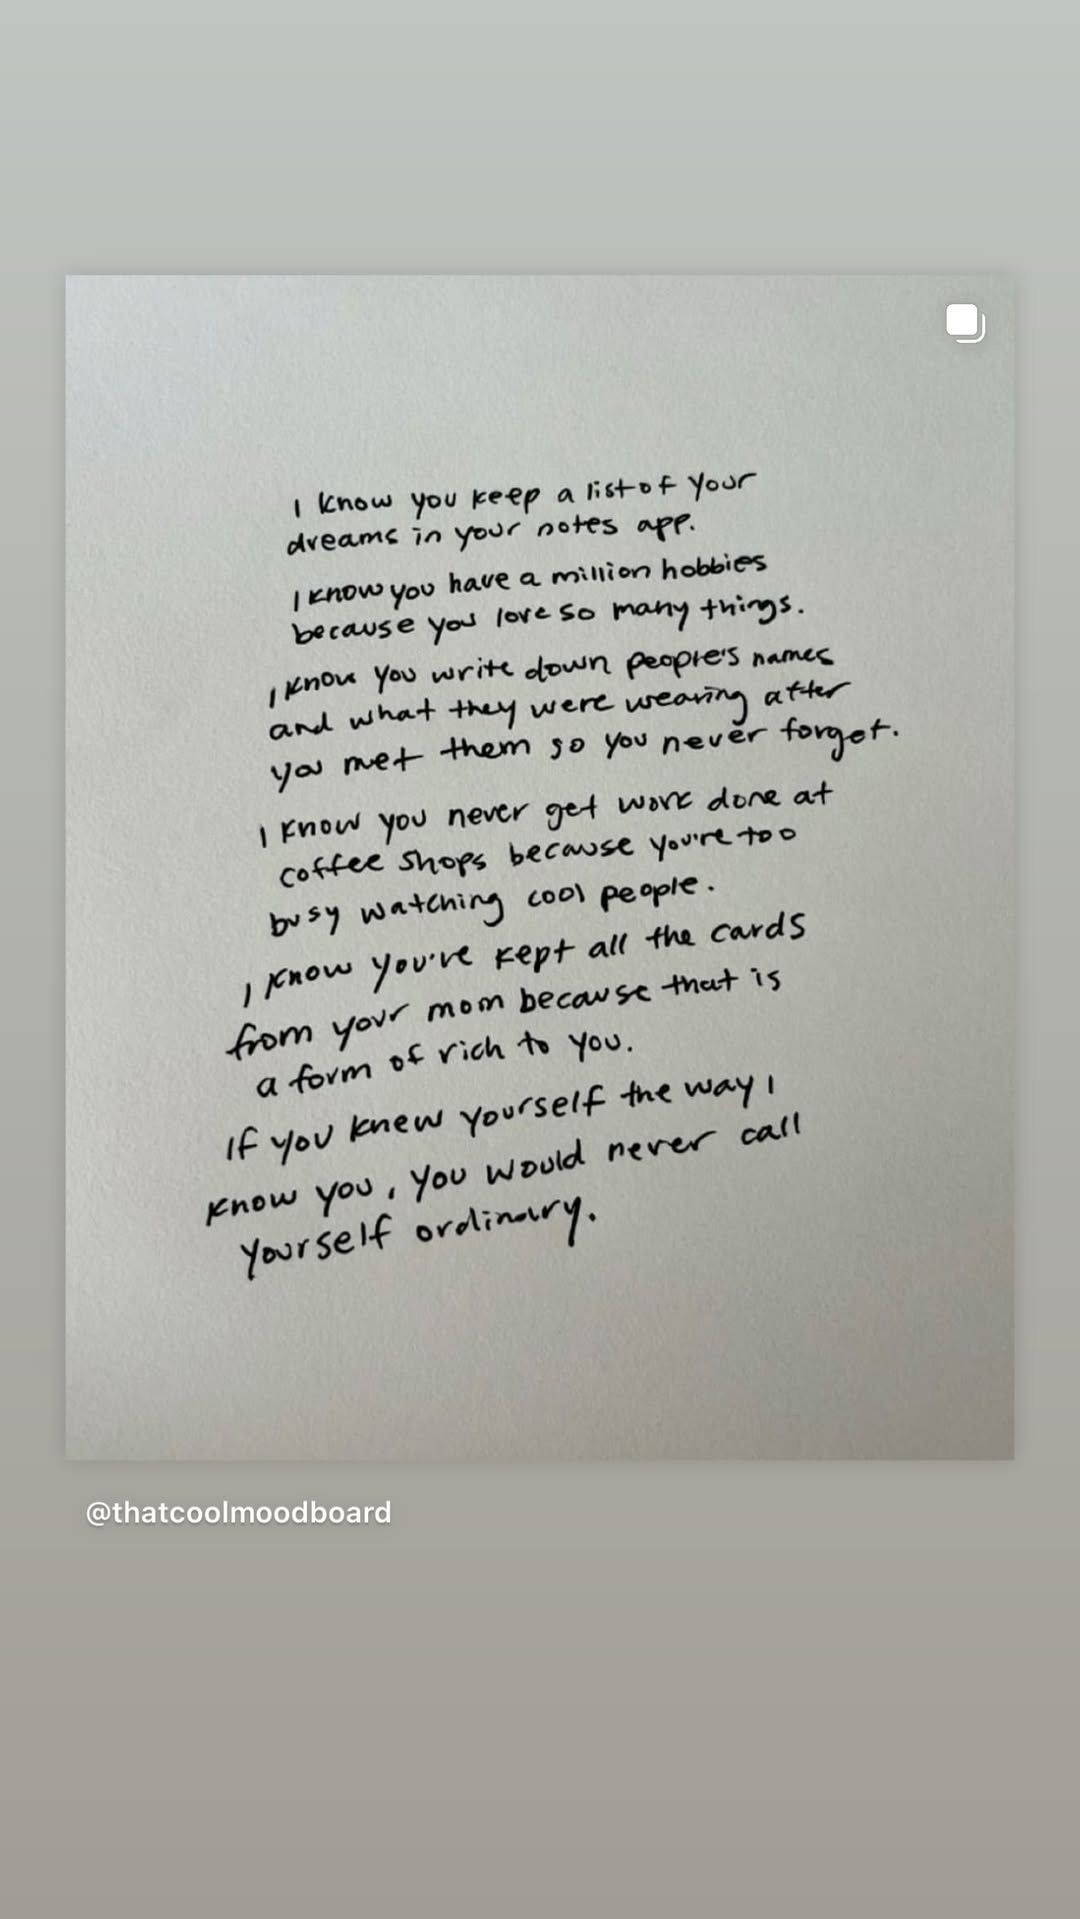 I know you keep a list of your
dreams in your notes app.
I know you have a million hobbies
because you love so many things.
I know you write down people's names
and what they were wearing after
you met them so you never forget.
I know you never get work done at
coffee shops because you're too
busy watching cool people.
I know you've kept all the cards
from your mom because that is
a form of rich to you.
If you knew yourself the way I
know you, you would never call
yourself ordinary.
@thatcoolmoodboard